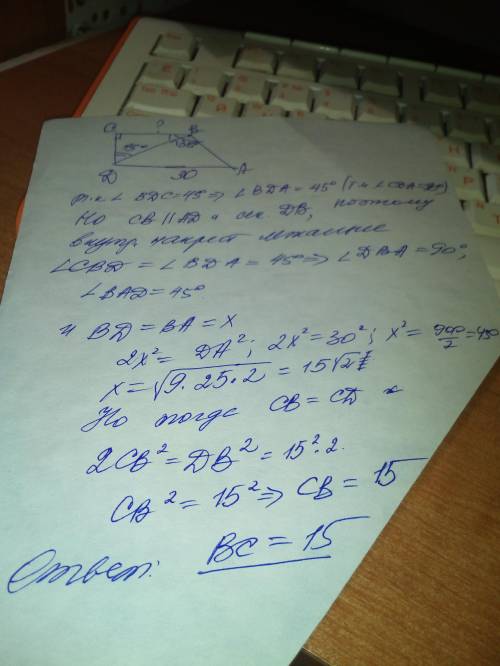 C ? B
45°
D 30 A
т.к ∠ BDC=45° ⇒ ∠BDA = 45° (т.к ∠CDA=90°)
Но CB || AD и сек DB, поэтому
внутр. накрест лежащие
∠CBD = ∠BDA = 45° ⇒ ∠DBA = 90°,
∠BAD = 45°.
и BD = BA = x
2x² = DA²; 2x² = 30²; x² = 900/2 = 450
x = √9·25·2 = 15√2
Но тогда CB = CD и
2CB² = DB² = 15²·2.
CB² = 15² ⇒ CB = 15
Ответ: BC = 15